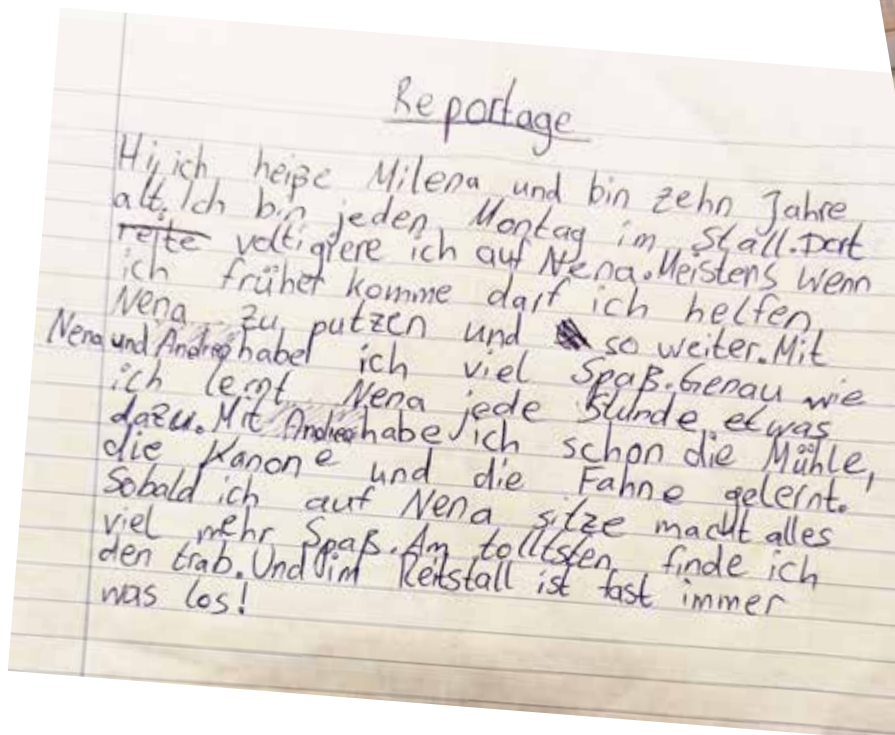 Reportage
Hi, ich heiße Milena und bin zehn Jahre
alt. Ich bin jeden Montag im Stall. Dort
reite voltigiere ich auf Nena. Meistens wenn
ich früher komme darf ich helfen
Nena zu putzen und so weiter. Mit
Nena und Andrea habe ich viel Spaß. Genau wie
ich lernt Nena jede Stunde etwas
dazu. Mit Andrea habe ich schon die Mühle,
die Kanone und die Fahne gelernt.
Sobald ich auf Nena sitze macht alles
viel mehr Spaß. Am tolltsten finde ich
den trab. Und im Reitstall ist fast immer
was los!